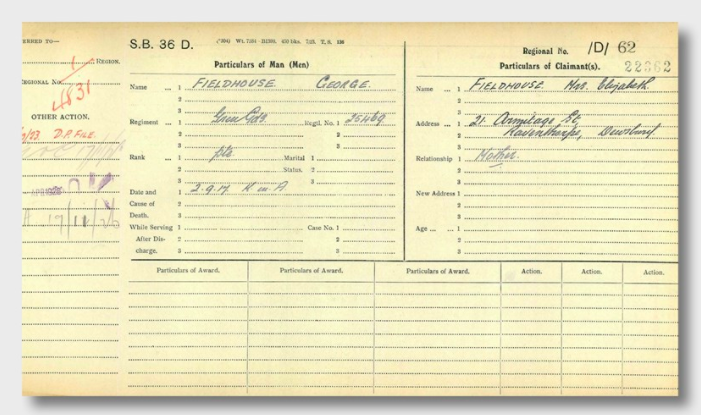 S.B. 36 D.
Regional No. /D/ 62
22362
REGION.
REGIONAL No.
831
OTHER ACTION.
D.P. FILE.
17/11/26
Particulars of Man (Men)
Name ... 1 FIELDHOUSE GEORGE.
2
3
Regiment ... 1 Gren Gds. Regtl. No. 1 25469
2 2
3 3
Rank ... 1 pte Marital 1
2 Status. 2
3 3
Date and 1 2.9.17 K in A
Cause of 2
Death. 3
While Serving 1 Case No. 1
After Dis- 2 2
charge. 3 3
Particulars of Claimant(s).
Name ... 1 FIELDHOUSE Mrs. Elizabeth.
2
3
Address ... 1 21. Armitage St,
2 Ravensthorpe, Dewsbury
3
Relationship 1 Mother.
2
3
New Address 1
2
3
Age ... ... 1
2
3
Particulars of Award. Particulars of Award. Particulars of Award. Action. Action. Action.